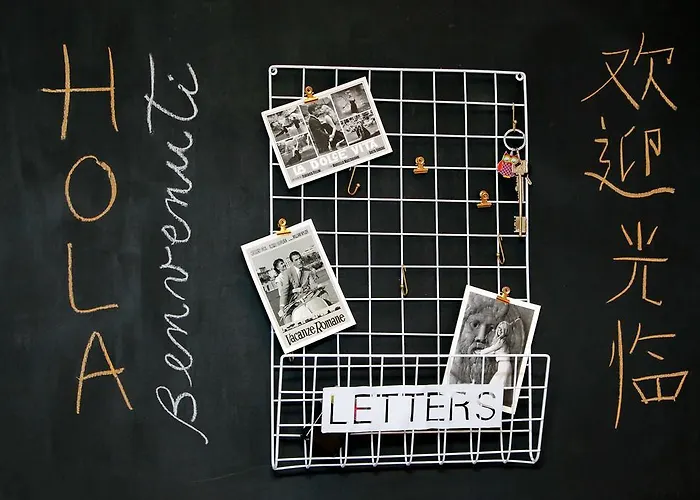 HOLA
Benvenuti
LA DOLCE VITA
Vacanze Romane
LETTERS
欢迎光临